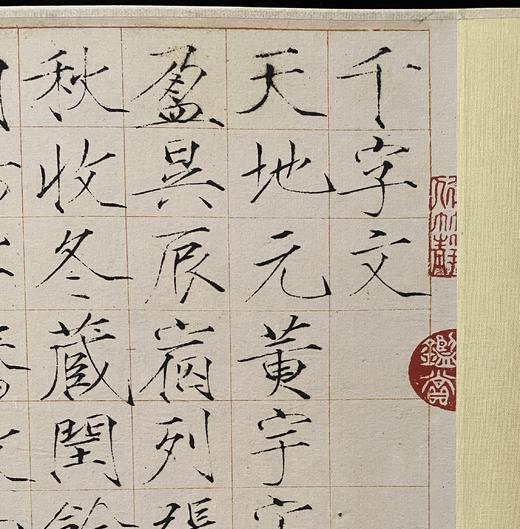 千字文
天地元黄宇宙
盈昃辰宿列張
秋收冬蔵閏餘
鑑賞